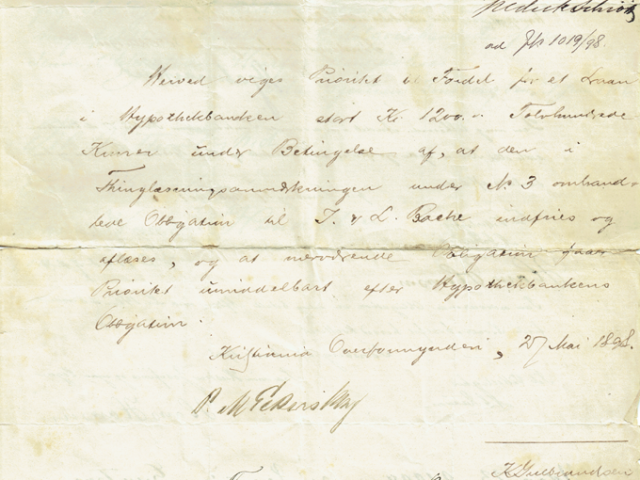 ad Jk 1019/98.
Herved viges Prioritet til Fordel for et Laan
i Hypothekbanken stort Kr. 1200.- Tolvhundrede
Kroner under Betingelse af, at den i
Thinglæsningsanmærkningen under No 3 omhand-
lede Obligation til J. & L. Bache indfries og
aflæses, og at nærværende Obligation faaer
Prioritet umiddelbart efter Hypothekbankens
Obligation.
Kristiania Overformynderi, 27 Mai 1898.